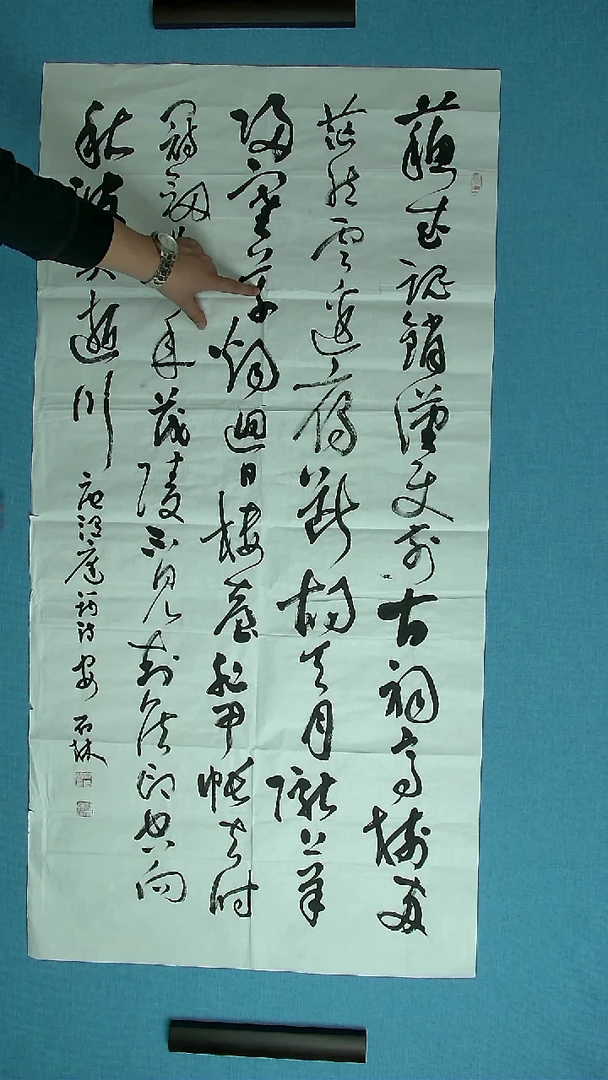 蘇武魂銷漢使前古祠高樹兩
茫然雲邊雁斷胡天月隴上羊
歸塞草烟迴日樓臺非甲帳去時
冠劍年茂陵不見封侯印空向
秋波哭逝川
唐温庭筠詩 安石林